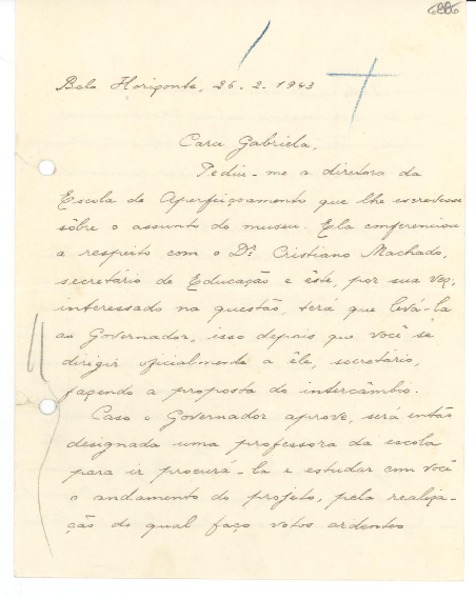 Belo Horizonte, 26. 2. 1943
Cara Gabriela,
Pediu-me a diretora da
Escola de Aperfeiçoamento que lhe escrevesse
sôbre o assunto do museu. Ela conferenciou
a respeito com o Dr. Cristiano Machado,
secretário de Educação e êste, por sua vez,
interessado na questão, terá que levá-la
ao Governador, isso depois que você se
dirigir oficialmente a êle, secretário,
fazendo a proposta do intercâmbio.
Caso o Governador aprove, será então
designada uma professora da escola
para ir procurá-la e estudar com você
o andamento do projeto, pela realiza-
ção do qual faço votos ardentes